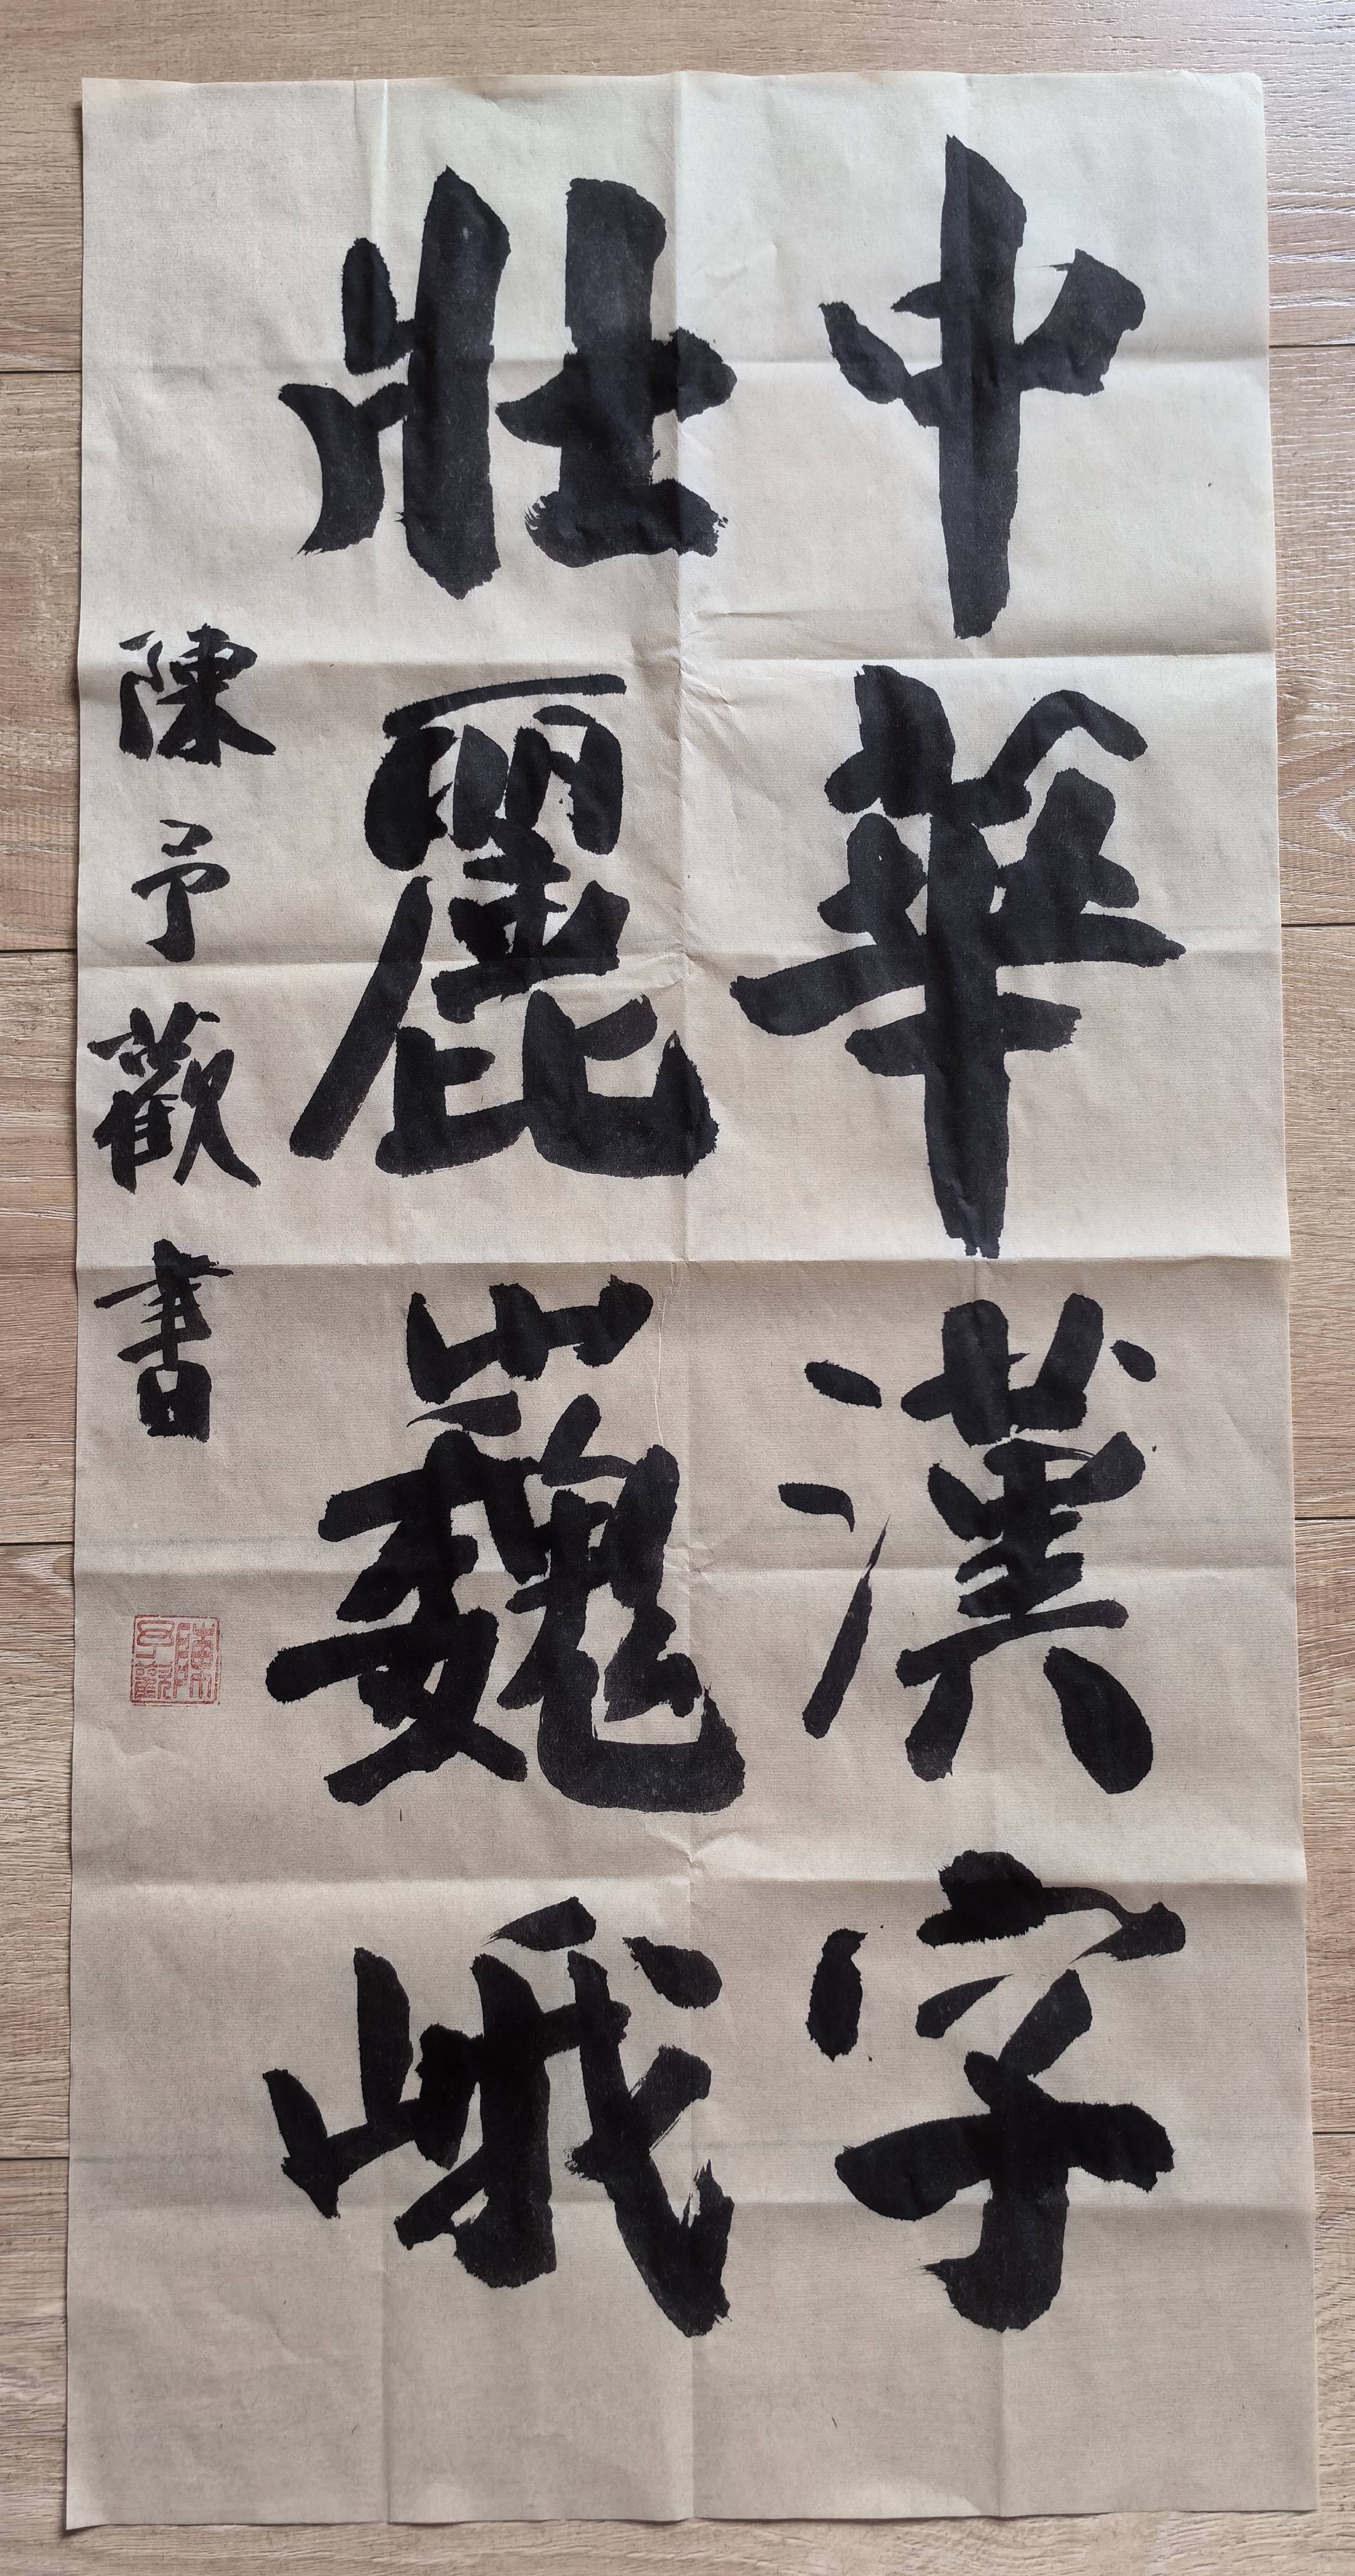 中華漢字
壯麗巍峨
陳予歡書
陳予歡